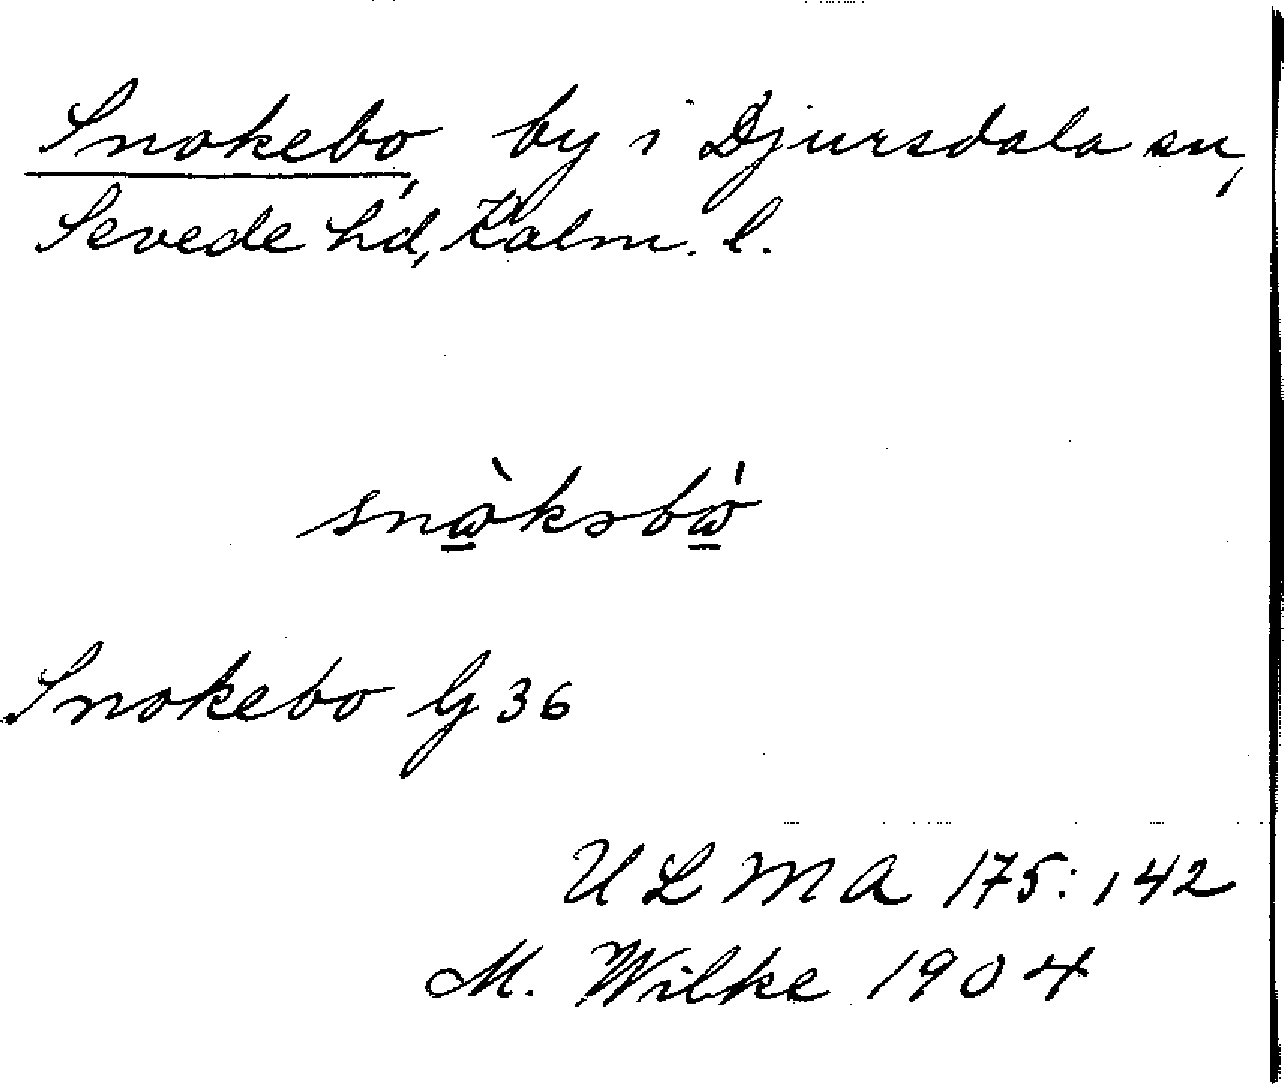 Snokebo, by i Djursdala sn,
Sevede hd, Kalm. l.
snὼ̲kəbώ̲
Snokebo G 36
ULMA 175:142
M. Wilke 1904